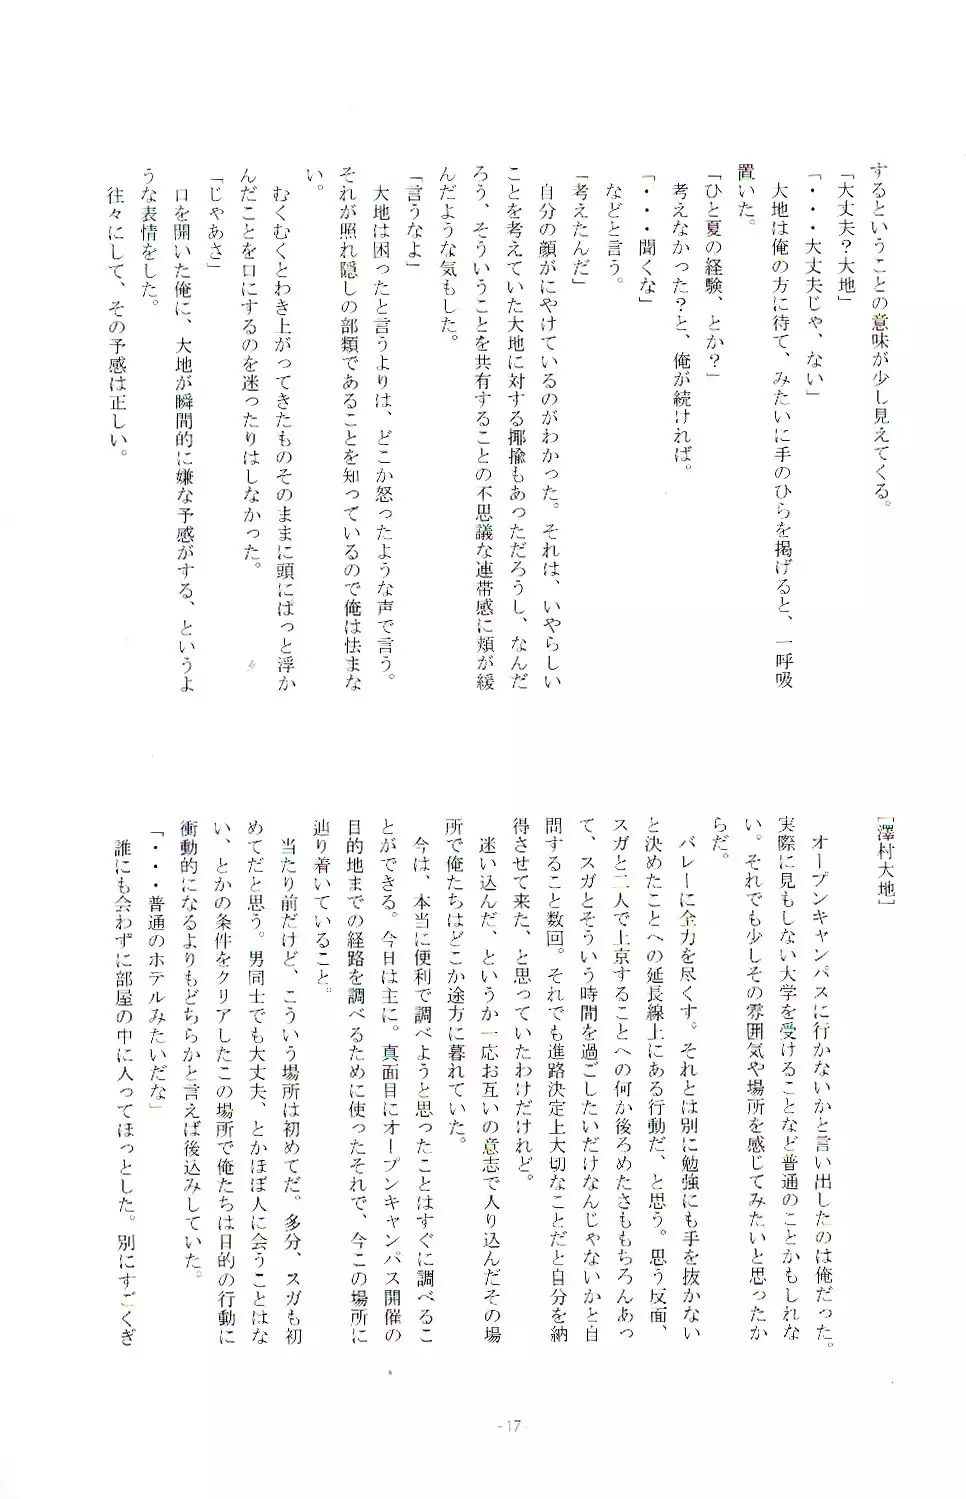 するということの意味が少し見えてくる。
「大丈夫？大地」
「・・・大丈夫じゃ、ない」
大地は俺の方に待て、みたいに手のひらを掲げると、一呼吸
置いた。
「ひと夏の経験、とか？」
考えなかった？と、俺が続ければ。
「・・・聞くな」
などと言う。
「考えたんだ」
自分の顔がにやけているのがわかった。それは、いやらしい
ことを考えていた大地に対する揶揄もあっただろうし、なんだ
ろう、そういうことを共有することの不思議な連帯感に頬が緩
んだような気もした。
「言うなよ」
大地は困ったと言うよりは、どこか怒ったような声で言う。
それが照れ隠しの部類であることを知っているので俺は怯まな
い。
むくむくとわき上がってきたものそのままに頭にぱっと浮か
んだことを口にするのを迷ったりはしなかった。
「じゃあさ」
口を開いた俺に、大地が瞬間的に嫌な予感がする、というよ
うな表情をした。
往々にして、その予感は正しい。
[澤村大地]
オープンキャンパスに行かないかと言い出したのは俺だった。
実際に見もしない大学を受けることなど普通のことかもしれな
い。それでも少しその雰囲気や場所を感じてみたいと思ったか
らだ。
バレーに全力を尽くす。それとは別に勉強にも手を抜かない
と決めたことへの延長線上にある行動だ、と思う。思う反面、
スガと二人で上京することへの何か後ろめたさももちろんあっ
て、スガとそういう時間を過ごしたいだけなんじゃないかと自
問すること数回。それでも進路決定上大切なことだと自分を納
得させて来た、と思っていたわけだけれど。
迷い込んだ、というか一応お互いの意志で入り込んだその場
所で俺たちはどこか途方に暮れていた。
今は、本当に便利で調べようと思ったことはすぐに調べるこ
とができる。今日は主に。真面目にオープンキャンパス開催の
目的地までの経路を調べるために使ったそれで、今この場所に
辿り着いていること。
当たり前だけど、こういう場所は初めてだ。多分、スガも初
めてだと思う。男同士でも大丈夫、とかほぼ人に会うことはな
い、とかの条件をクリアしたこの場所で俺たちは目的の行動に
衝動的になるよりもどちらかと言えば後込みしていた。
「・・・普通のホテルみたいだな」
誰にも会わずに部屋の中に入ってほっとした。別にすごくぎ
-17